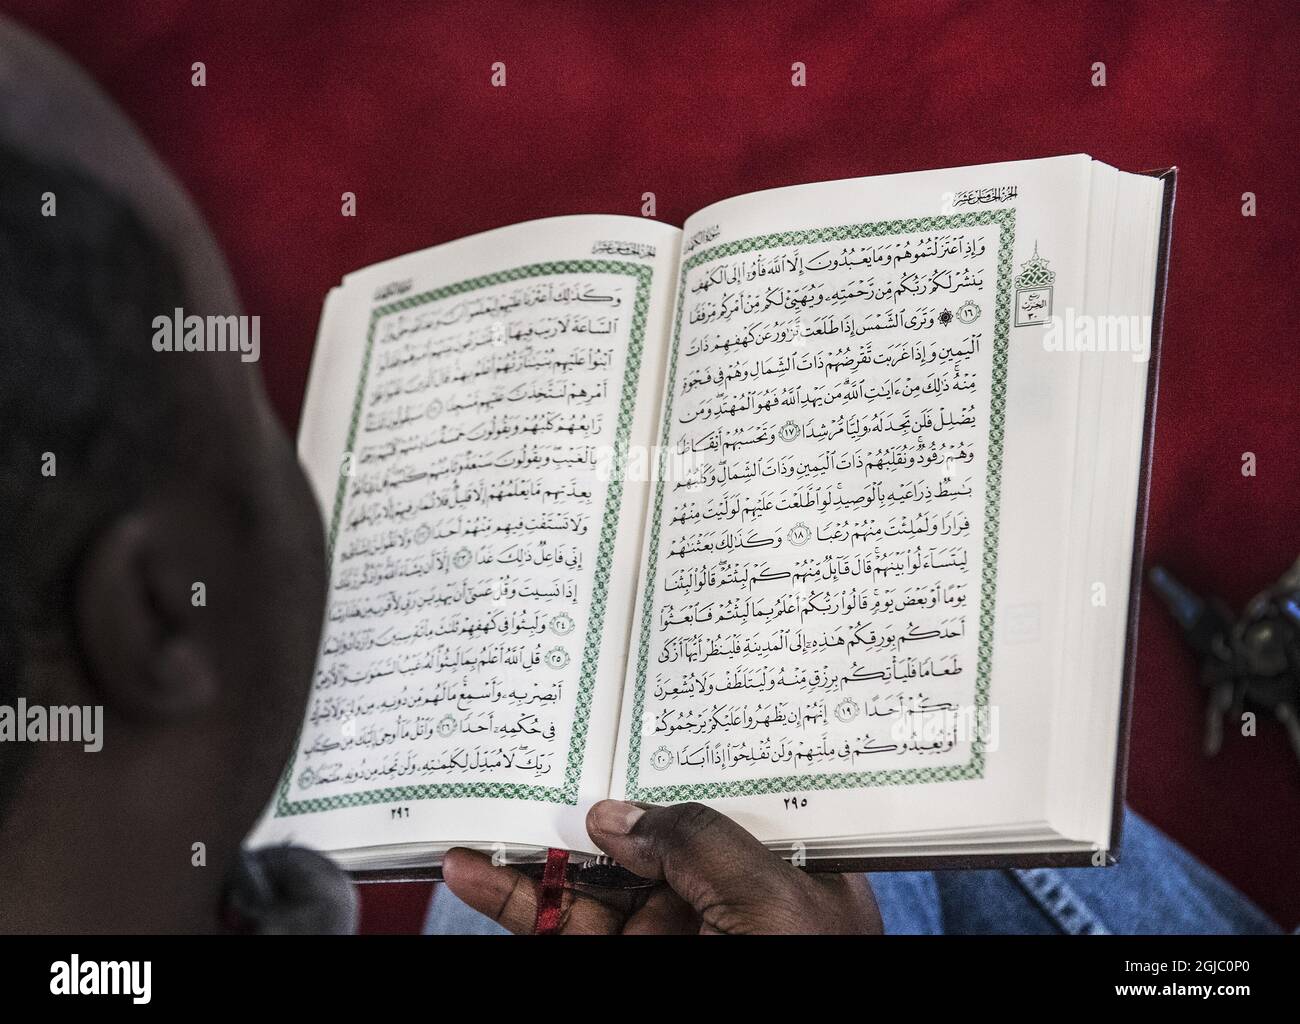 سُورَةُ الكَهْفِ
وَإِذِ ٱعْتَزَلْتُمُوهُمْ وَمَا يَعْبُدُونَ إِلَّا ٱللَّهَ فَأْوُۥٓا۟ إِلَى ٱلْكَهْفِ
يَنشُرْ لَكُمْ رَبُّكُم مِّن رَّحْمَتِهِۦ وَيُهَيِّئْ لَكُم مِّنْ أَمْرِكُم مِّرْفَقًا
١٦ ۞ وَتَرَى ٱلشَّمْسَ إِذَا طَلَعَت تَّزَٰوَرُ عَن كَهْفِهِمْ ذَاتَ
ٱلْيَمِينِ وَإِذَا غَرَبَت تَّقْرِضُهُمْ ذَاتَ ٱلشِّمَالِ وَهُمْ فِى فَجْوَةٍ
مِّنْهُ ۚ ذَٰلِكَ مِنْ ءَايَٰتِ ٱللَّهِ ۗ مَن يَهْدِ ٱللَّهُ فَهُوَ ٱلْمُهْتَدِ ۖ وَمَن
يُضْلِلْ فَلَن تَجِدَ لَهُۥ وَلِيًّا مُّرْشِدًا ١٧ وَتَحْسَبُهُمْ أَيْقَاظًا
وَهُمْ رُقُودٌ ۚ وَنُقَلِّبُهُمْ ذَاتَ ٱلْيَمِينِ وَذَاتَ ٱلشِّمَالِ ۖ وَكَلْبُهُم
بَٰسِطٌ ذِرَاعَيْهِ بِٱلْوَصِيدِ ۚ لَوِ ٱطَّلَعْتَ عَلَيْهِمْ لَوَلَّيْتَ مِنْهُمْ
فِرَارًا وَلَمُلِئْتَ مِنْهُمْ رُعْبًا ١٨ وَكَذَٰلِكَ بَعَثْنَٰهُمْ
لِيَتَسَآءَلُوا۟ بَيْنَهُمْ ۚ قَالَ قَآئِلٌ مِّنْهُمْ كَمْ لَبِثْتُمْ ۖ قَالُوا۟ لَبِثْنَا
يَوْمًا أَوْ بَعْضَ يَوْمٍ ۚ قَالُوا۟ رَبُّكُمْ أَعْلَمُ بِمَا لَبِثْتُمْ فَٱبْعَثُوٓا۟
أَحَدَكُم بِوَرِقِكُمْ هَٰذِهِۦٓ إِلَى ٱلْمَدِينَةِ فَلْيَنظُرْ أَيُّهَآ أَزْكَىٰ
طَعَامًا فَلْيَأْتِكُم بِرِزْقٍ مِّنْهُ وَلْيَتَلَطَّفْ وَلَا يُشْعِرَنَّ
بِكُمْ أَحَدًا ١٩ إِنَّهُمْ إِن يَظْهَرُوا۟ عَلَيْكُمْ يَرْجُمُوكُمْ
أَوْ يُعِيدُوكُمْ فِى مِلَّتِهِمْ وَلَن تُفْلِحُوٓا۟ إِذًا أَبَدًا ٢٠
٢٩٥
ربع
الحزب
٣٠
وَكَذَٰلِكَ أَعْثَرْنَا عَلَيْهِمْ لِيَعْلَمُوٓا۟
ٱلسَّاعَةَ لَا رَيْبَ فِيهَآ
ٱبْنُوا۟ عَلَيْهِم بُنْيَٰنًا ۖ رَّبُّهُمْ أَعْلَمُ بِهِمْ ۚ قَالَ ٱلَّذِينَ غَلَبُوا۟ عَلَىٰٓ
أَمْرِهِمْ لَنَتَّخِذَنَّ عَلَيْهِم مَّسْجِدًا ٢١ سَيَقُولُونَ
رَّابِعُهُمْ كَلْبُهُمْ وَيَقُولُونَ خَمْسَةٌ سَادِسُهُمْ كَلْبُهُمْ
بِٱلْغَيْبِ ۖ وَيَقُولُونَ سَبْعَةٌ وَثَامِنُهُمْ كَلْبُهُمْ ۚ قُل رَّبِّىٓ أَعْلَمُ
بِعِدَّتِهِم مَّا يَعْلَمُهُمْ إِلَّا قَلِيلٌ ۗ فَلَا تُمَارِ فِيهِمْ إِلَّا مِرَآءً ظَٰهِرًا
وَلَا تَسْتَفْتِ فِيهِم مِّنْهُمْ أَحَدًا ٢٢ وَلَا تَقُولَنَّ لِشَا۟ىْءٍ
إِنِّى فَاعِلٌ ذَٰلِكَ غَدًا ٢٣ إِلَّآ أَن يَشَآءَ ٱللَّهُ ۚ وَٱذْكُر رَّبَّكَ
إِذَا نَسِيتَ وَقُلْ عَسَىٰٓ أَن يَهْدِيَنِ رَبِّى لِأَقْرَبَ مِنْ هَٰذَا رَشَدًا
٢٤ وَلَبِثُوا۟ فِى كَهْفِهِمْ ثَلَٰثَ مِا۟ئَةٍ سِنِينَ وَٱزْدَادُوا۟ تِسْعًا
٢٥ قُلِ ٱللَّهُ أَعْلَمُ بِمَا لَبِثُوا۟ ۖ لَهُۥ غَيْبُ ٱلسَّمَٰوَٰتِ وَٱلْأَرْضِ ۖ
أَبْصِرْ بِهِۦ وَأَسْمِعْ ۚ مَا لَهُم مِّن دُونِهِۦ مِن وَلِىٍّ وَلَا يُشْرِكُ
فِى حُكْمِهِۦٓ أَحَدًا ٢٦ وَٱتْلُ مَآ أُوحِىَ إِلَيْكَ مِن كِتَابِ
رَبِّكَ ۖ لَا مُبَدِّلَ لِكَلِمَٰتِهِۦ وَلَن تَجِدَ مِن دُونِهِۦ مُلْتَحَدًا ٢٧
٢٩٦
alamy
alamy
Image ID: 2GJC0P0
www.alamy.com